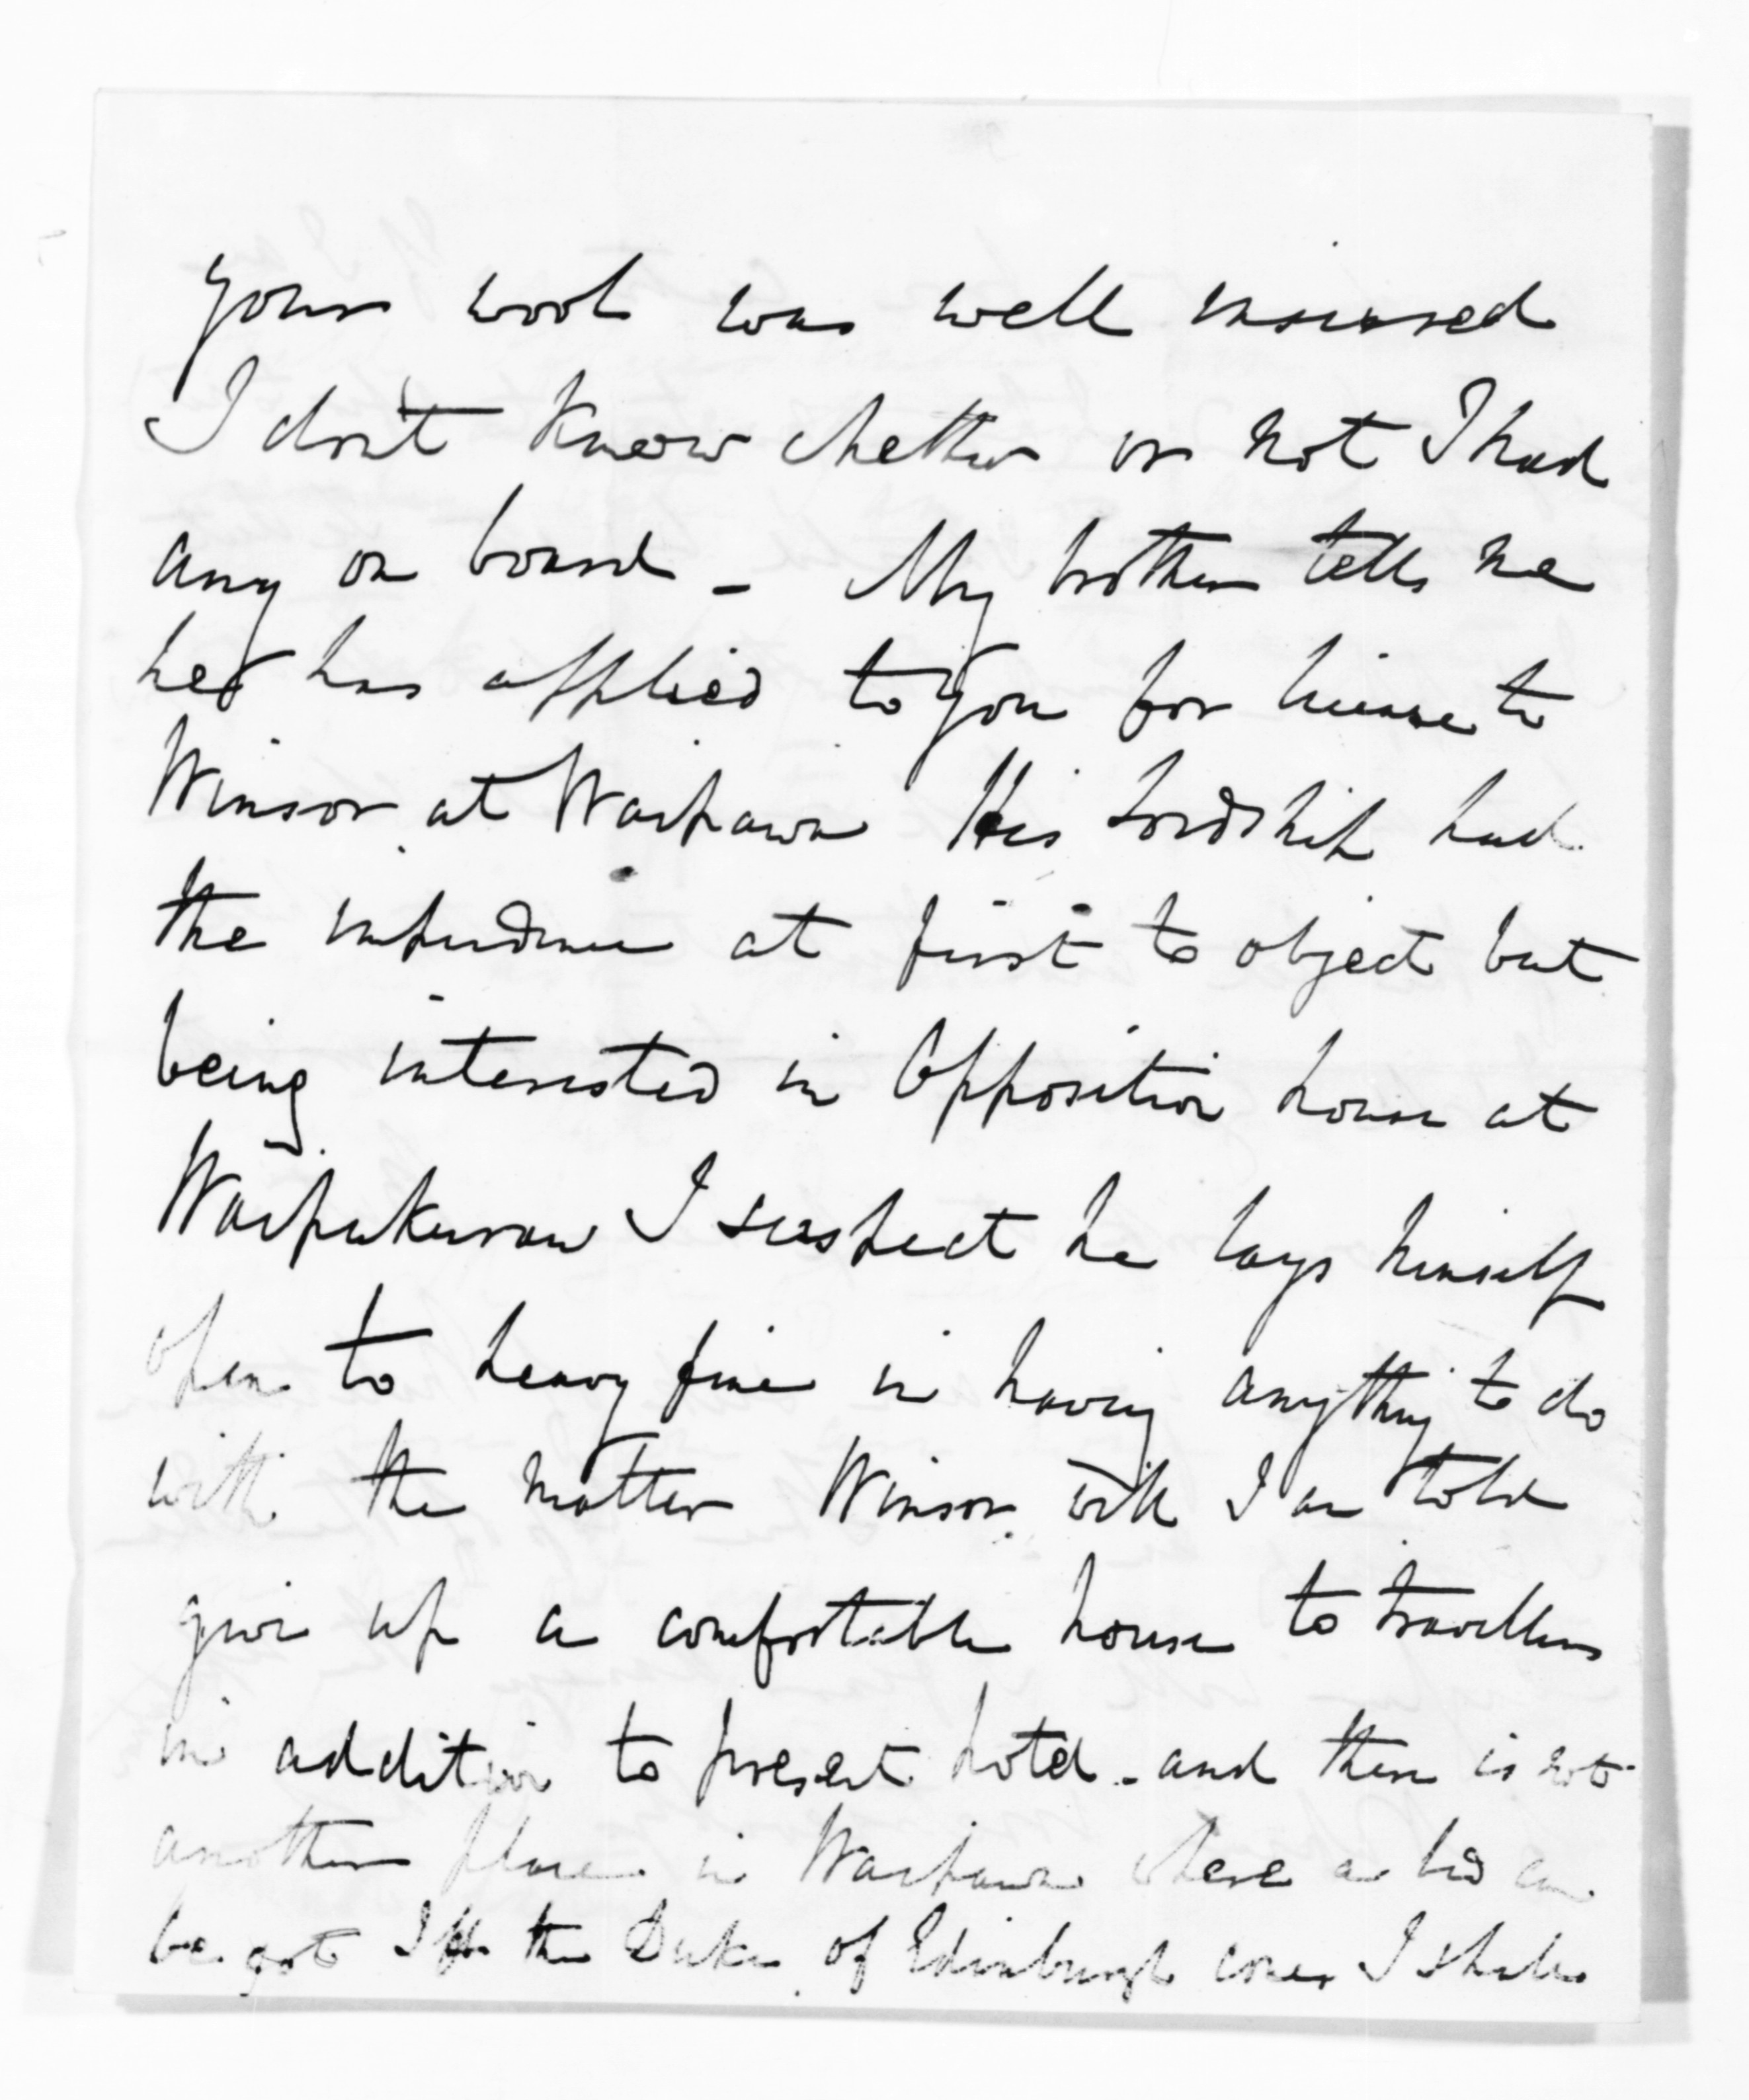 your wool was well insured
I don't know whether or not I had
any on board - My brother tells me
he has applied to you for license to
Winsor at Waipawa His Lordship had
the impudence at first to object but
being interested in Opposition house at
Waipukurau I suspect he lays himself
open to heavy fine in having anything to do
with the matter Winsor will I am told
give up a comfortable house to travellers
in addition to present hotel - and there is not
another place in Waipawa where a bed can
be got If the Duke of Edinburgh comes I shall